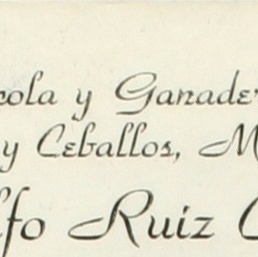 cola y Ganade
y Ceballos, M
lfo Ruiz C